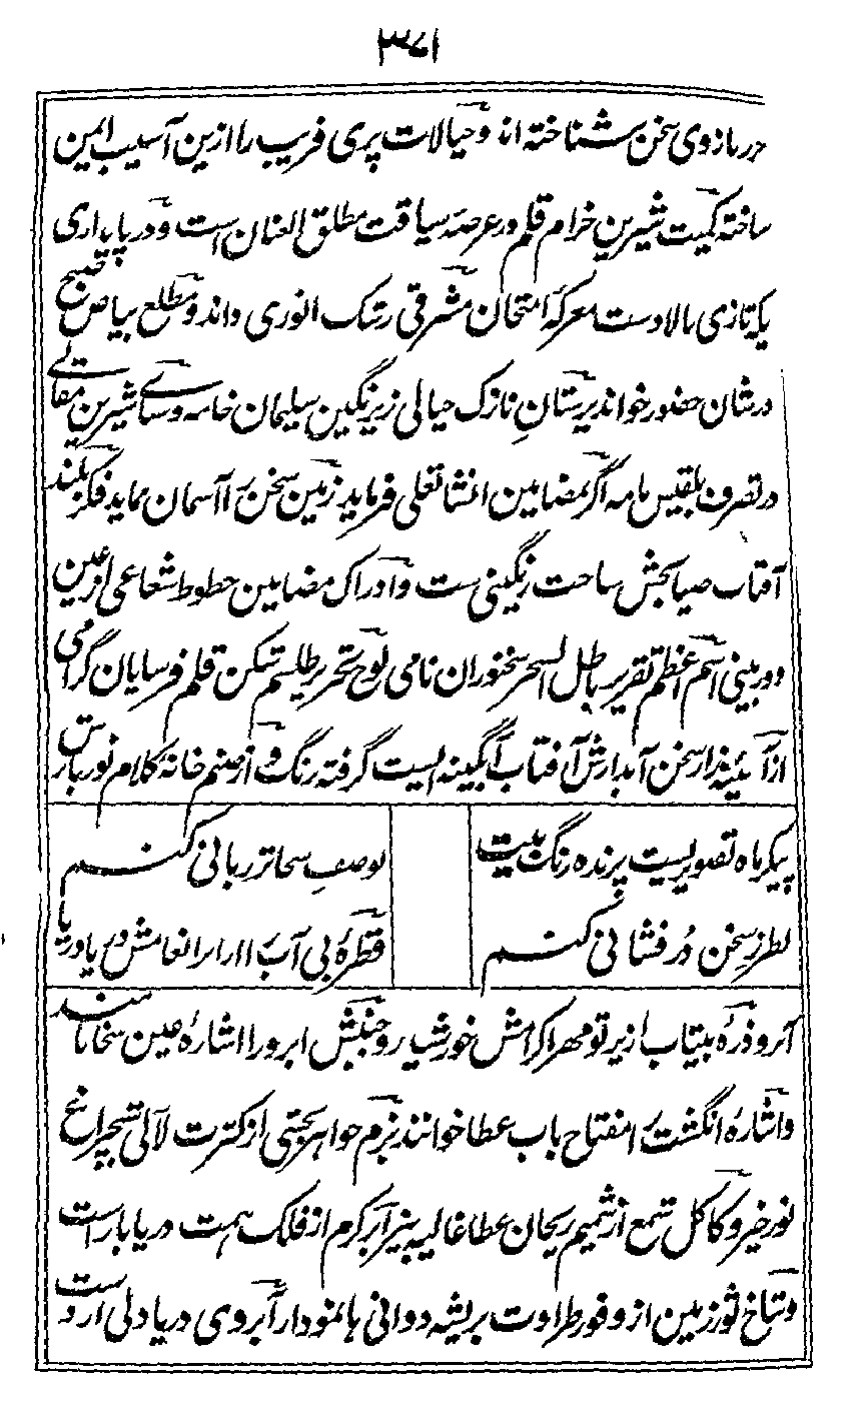 ۳۷۱
حرز بازوی سخن شناخته اند و خیالات پری فریب را ازین آسیب ایمن
ساخته کمیت شیرین خرام قلم در عرصهٔ سیاقت مطلق العنان است و در پایداری
یکه تازی بالادست معرکهٔ امتحان مشرقی رشک انوری داند و مطلع بیاض صبح
در شان حضور خواند پرستانِ نازک خیالی زیر نگین سلیمان خامه و سبای شیرین مقالی
در تصرف بلقیس نامه اگر بمضامین انشا تعلی فرماید زمین سخن را آسمان نماید فکر بلند
آفتاب ضیابخش ساحت رنگینی ست و ادراک مضامین خطوط شعاعی از عین
دوربینی اسم اعظم تقریر باطل السحر سخنوران نامی لوح تحریر طلسم شکن قلم فرسایان گرامی
از آئینه دار سخن آبدارش آفتاب آبگینه ایست گرفته رنگ و از صنم خانهٔ کلام نوربارش
پیکر ماه تصویریست پرنده رنگ بیت
بوصفِ سحاتر زبانی کنم
بطرز سخن دُر فشانی کنم
قطرهٔ بی آب را از ابر انعامش در یا دریا
آبرو ذرهٔ بیتاب از پرتو مهر اکرامش خورشید رو جنبش ابرو را اشارهٔ عین سخا نامند
و اشارهٔ انگشت را مفتاح باب عطا خوانند بزم جواهر بخشی از کثرت لآلی شبچراغ
نور خیز و کاکل شمع از شمیم ریحان عطا غالیه بیز ابر کرم از فلک همت دریا بار است
و شاخ ثور زمین از وفور طراوت بریشه دوانی ها نمودار آبروی دریا دلی از دست